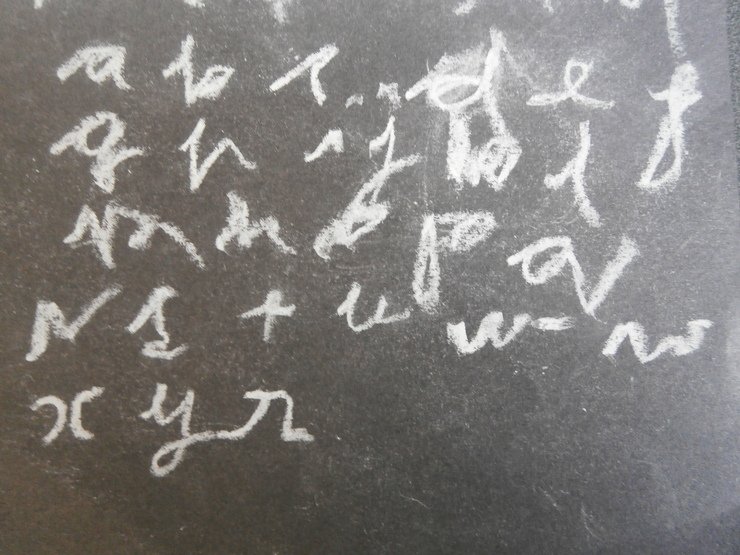 a b c d e f
g h i j k l
m n o p q
r s t u w
x y z